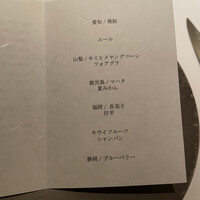 愛知 / 鮑鮨
エール
山梨 / キミヒメヤングコーン
フォアグラ
鹿児島 / マハタ
夏みかん
福岡 / 長茄子
仔羊
キウイフルーツ
シャンパン
静岡 / ブルーベリー